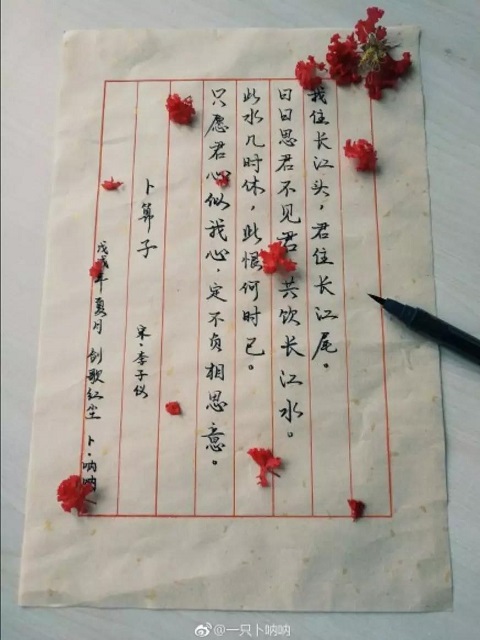 我住长江头，君住长江尾。
日日思君不见君 共饮长江水。
此水几时休，此恨何时已。
只愿君心似我心，定不负相思意。
卜算子
宋·李之仪
戊戌年夏月 剑歌红尘 卜·呐呐
@一只卜呐呐